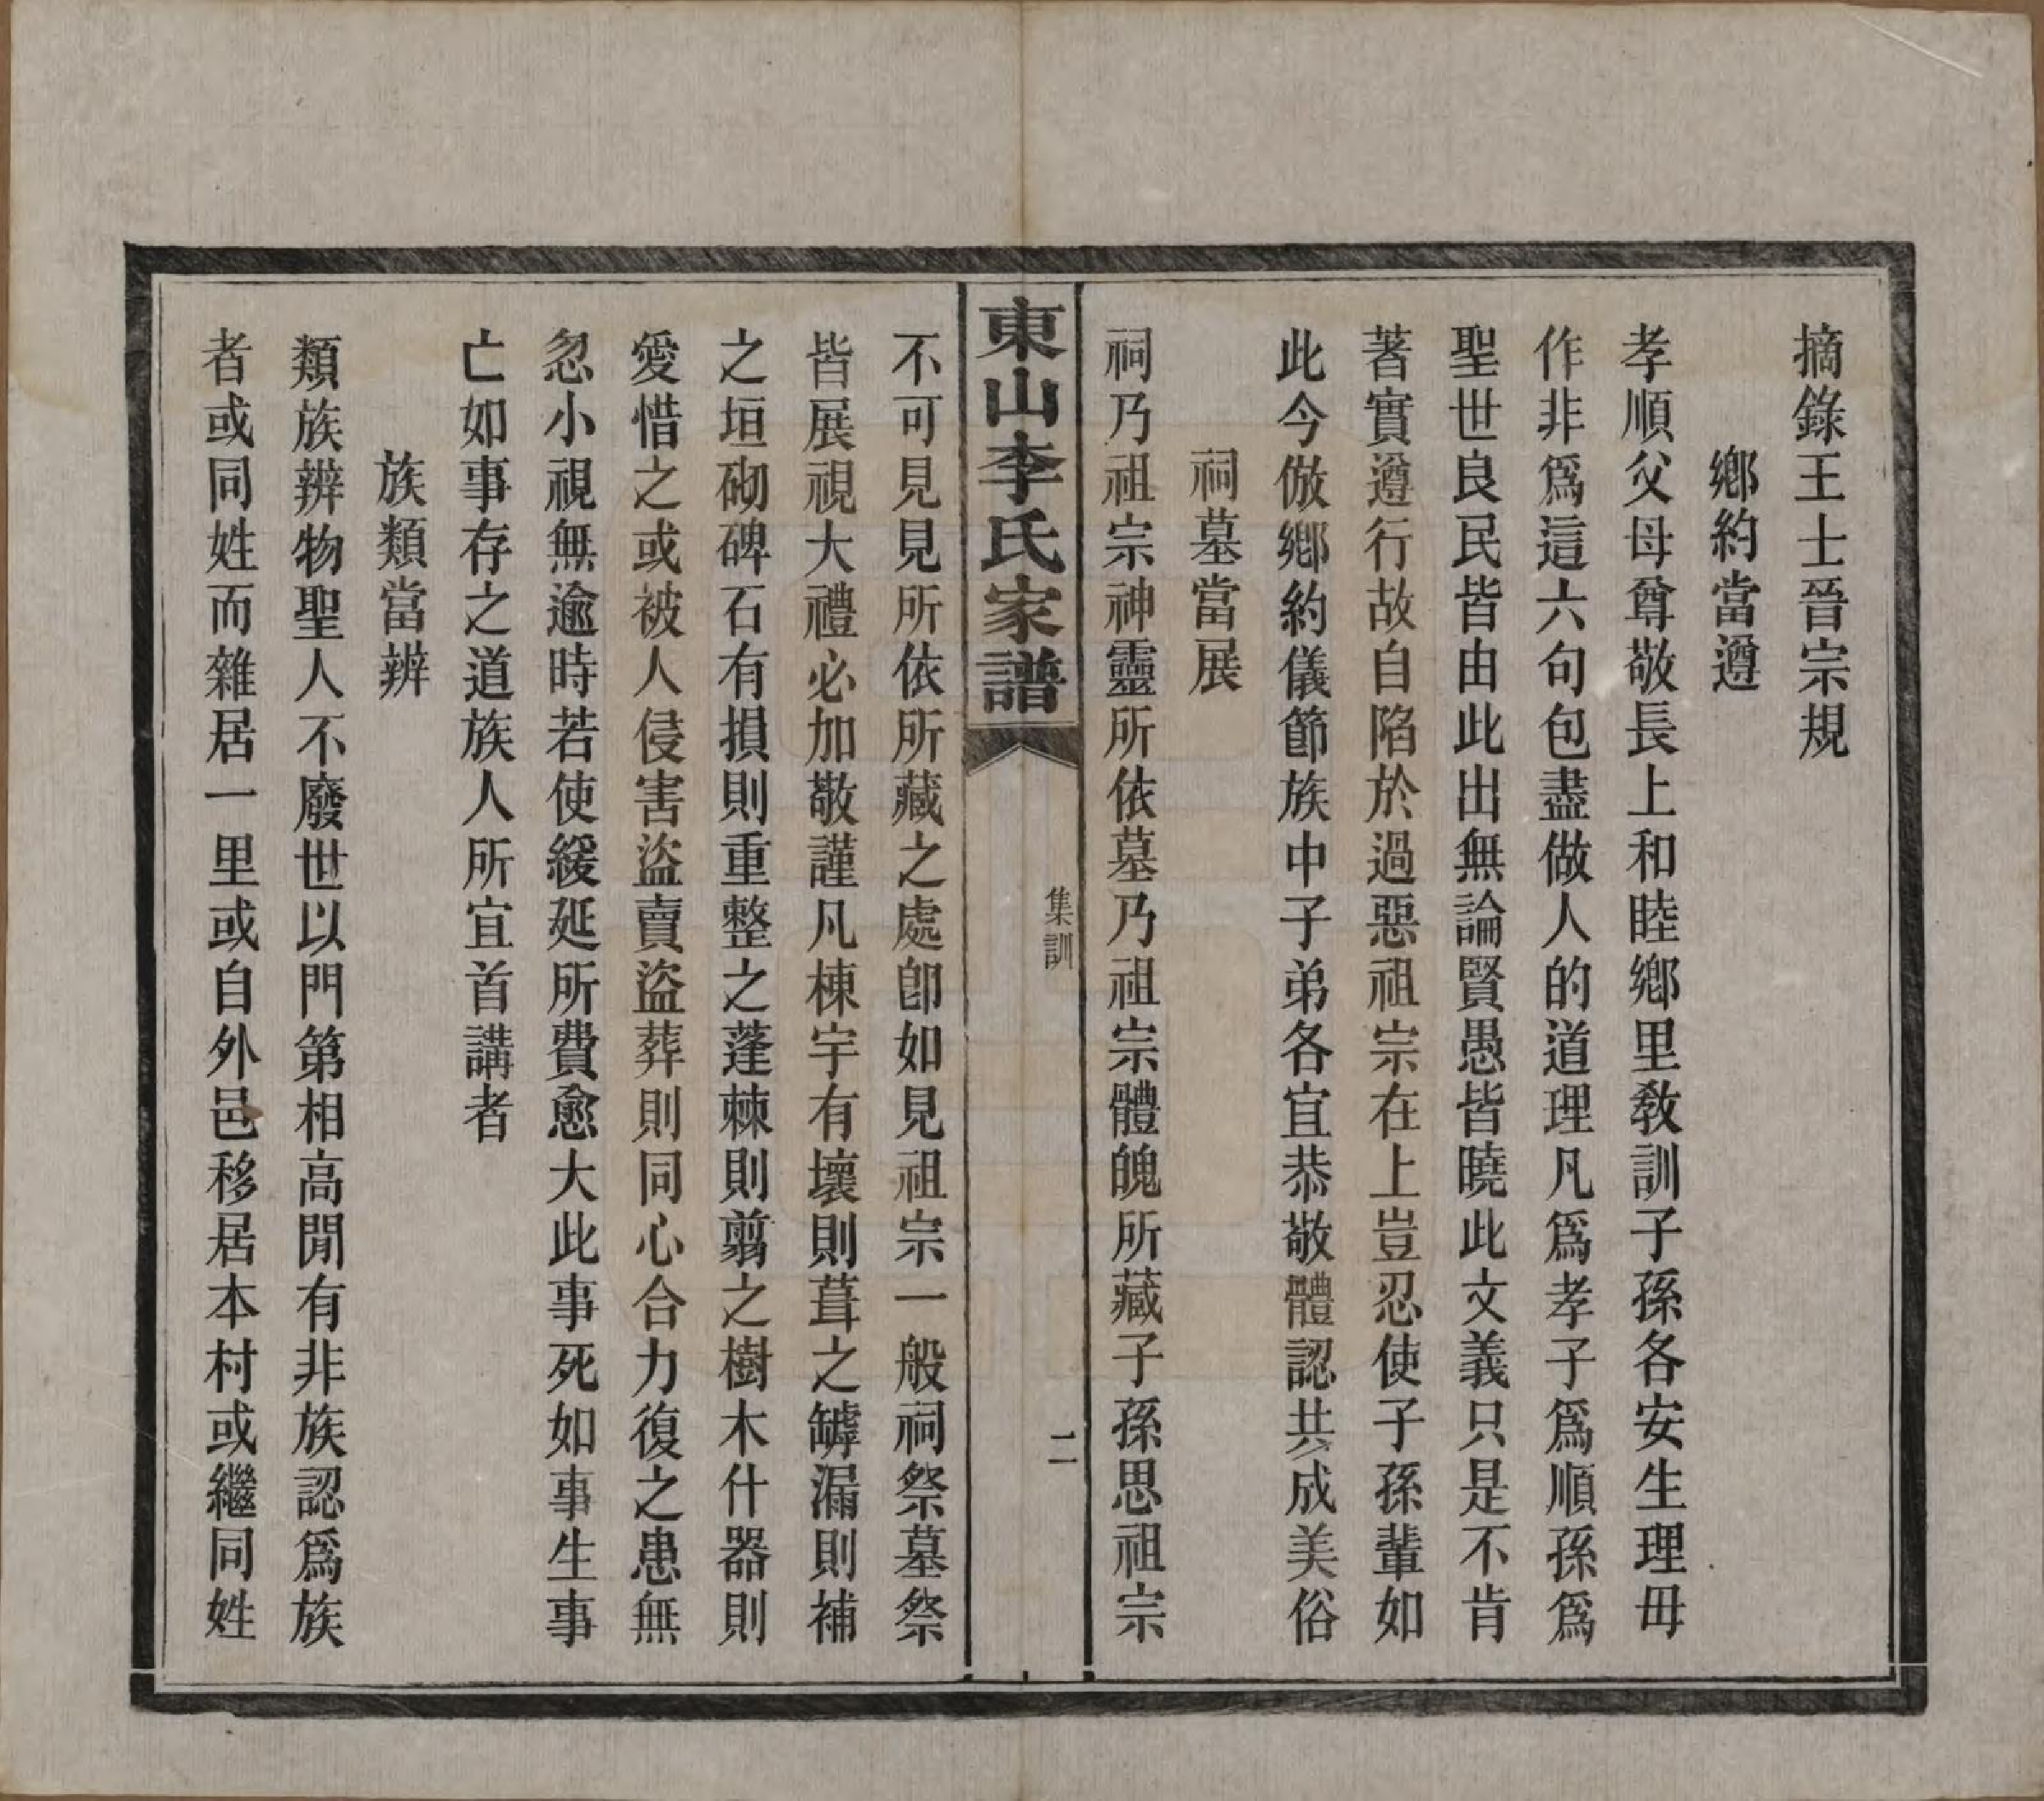 摘錄王士晉宗規
鄉約當遵
孝順父母尊敬長上和睦鄉里敎訓子孫各安生理毋
作非爲這六句包盡做人的道理凡爲孝子爲順孫爲
聖世良民皆由此出無論賢愚皆曉此文義只是不肯
著實遵行故自陷於過惡祖宗在上豈忍使子孫輩如
此今倣鄉約儀節族中子弟各宜恭敬體認共成美俗
祠墓當展
祠乃祖宗神靈所依墓乃祖宗體魄所藏子孫思祖宗
東山李氏家譜
集訓
二
不可見見所依所藏之處卽如見祖宗一般祠祭墓祭
皆展視大禮必加敬謹凡棟宇有壞則葺之罅漏則補
之垣砌碑石有損則重整之蓬棘則翦之樹木什器則
愛惜之或被人侵害盜賣盜葬則同心合力復之患無
忽小視無逾時若使緩延所費愈大此事死如事生事
亡如事存之道族人所宜首講者
族類當辨
類族辨物聖人不廢世以門第相高閒有非族認爲族
者或同姓而雜居一里或自外邑移居本村或繼同姓